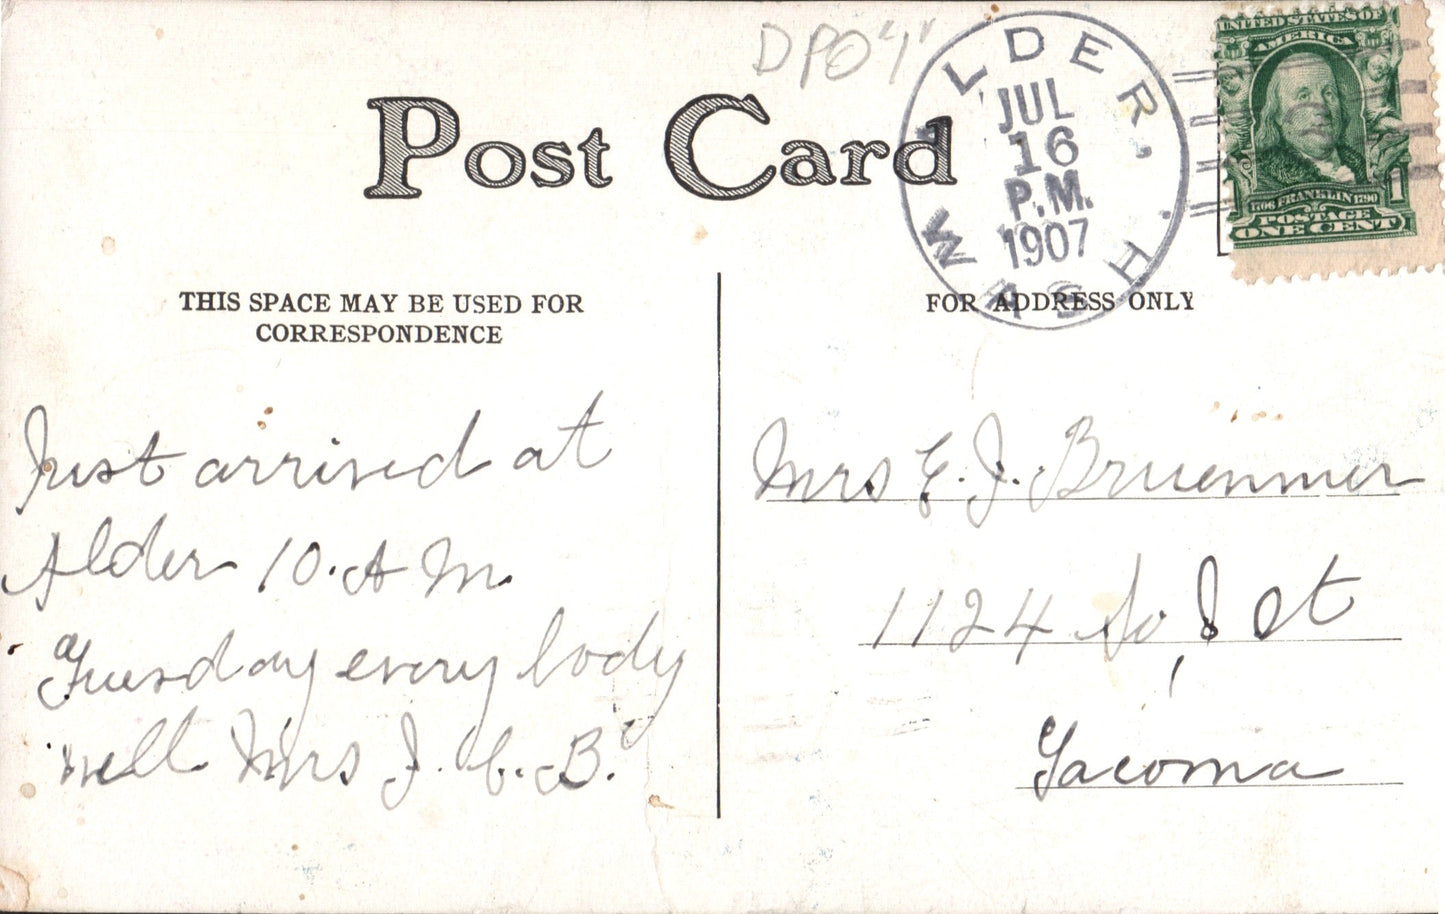 DPO "1"
Post Card
ALDER, WASH.
JUL
16
P.M.
1907
UNITED STATES OF
AMERICA
1706 FRANKLIN 1790
1 POSTAGE 1
ONE CENT
THIS SPACE MAY BE USED FOR
CORRESPONDENCE
Just arrived at
Alder 10. A M.
Tuesday every body
well Mrs J. C. B.
FOR ADDRESS ONLY
Mrs E. J. Bruenmer
1124 So, J St
Tacoma